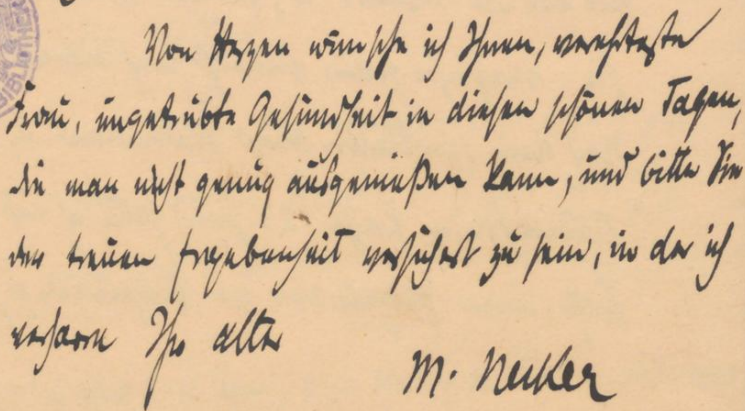 Von Herzen wünsche ich Ihnen, verehrteste
Frau, ungetrübte Gesundheit in diesen schönen Tagen,
die man nicht genug ausgenießen kann, und bitte Sie
der treuen Ergebenheit versichert zu sein, in der ich
verharre Ihr alter
M. Necker